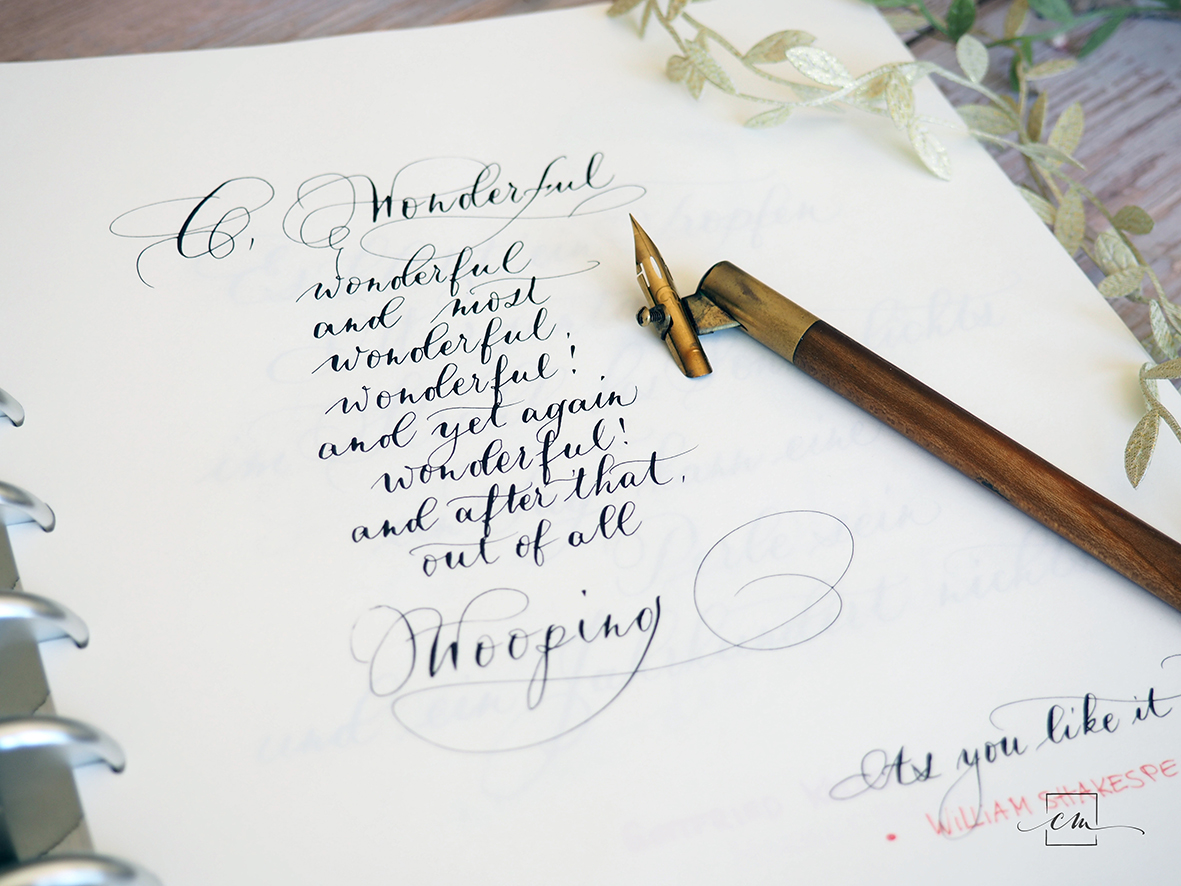 O, Wonderful
wonderful
and most
wonderful,
wonderful!
and yet again
wonderful!
and after that,
out of all
Wooping
As you like it
• WILLIAM SHAKESPE
cm